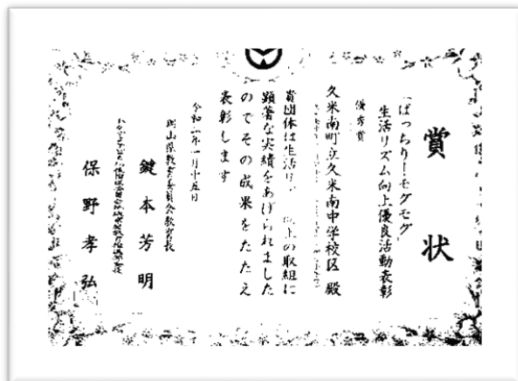 賞状
「ぱっちり！モグモグ」
生活リズム向上優良活動表彰
優秀賞
久米南町立久米南中学校区 殿
貴団体は生活リ 向上の取組に
顕著な実績をあげられました
のでその成果をたたえ
表彰します
令和 年一月十五日
岡山県教育委員会教育長
鍵本芳明
保野孝弘